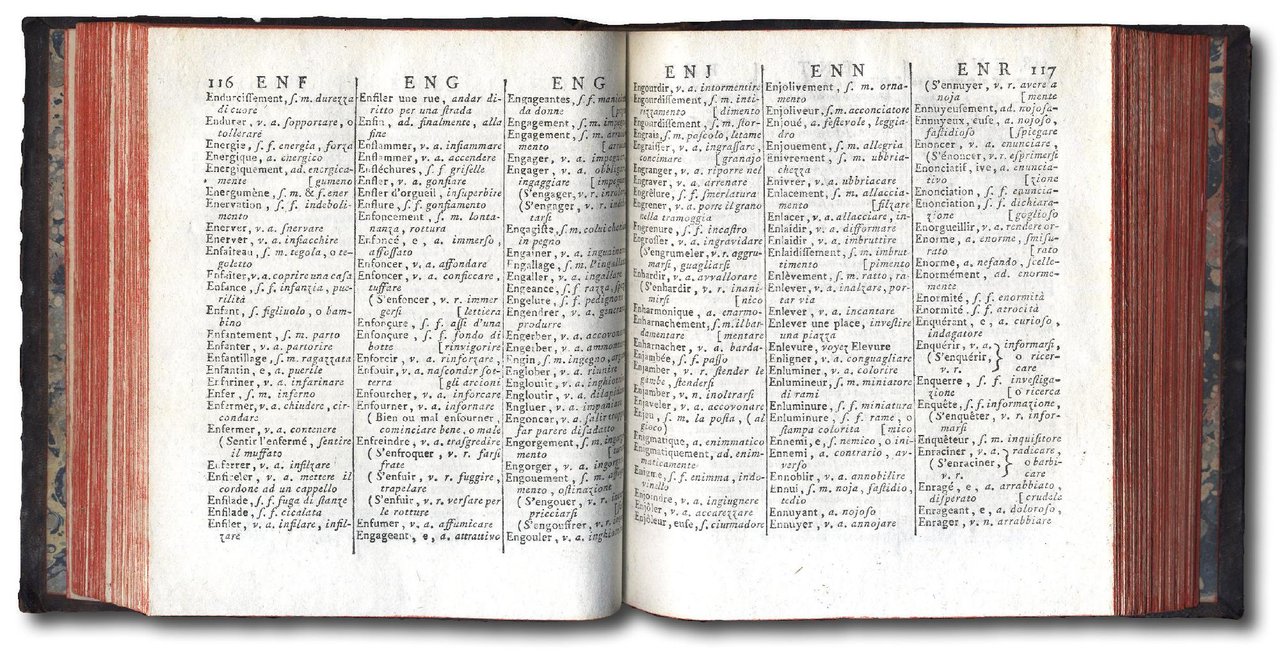 116 ENF
Endurcissement, ſ. m. durezza
di cuore
Endurer, v. a. ſopportare, o
tollerare
Energie, ſ. f. energia, forza
Energique, a. energico
Energiquement, ad. energica-
mente [gumeno
Energumène, ſ. m. & f. ener
Enervation, ſ. f. indeboli-
mento
Enerver, v. a. ſnervare
Enerver, v. a. infiacchire
Enfaiteau, ſ. m. tegola, o te-
goletto
Enfaiter, v. a. coprire una caſa
Enfance, ſ. f. infanzia, pue-
rilità
Enfant, ſ. figliuolo, o bam-
bino
Enfantement, ſ. m. parto
Enfanter, v. a. partorire
Enfantillage, ſ. m. ragazzata
Enfantin, e, a. puerile
Enfariner, v. a. infarinare
Enfer, ſ. m. inferno
Enfermer, v. a. chiudere, cir-
condare
Enfermer, v. a. contenere
(Sentir l'enfermé, ſentire
il muffato
Enferrer, v. a. infilzare
Enficeler, v. a. mettere il
cordone ad un cappello
Enfilade, ſ. f. fuga di ſtanze
Enfilade, ſ. f. cicalata
Enfiler, v. a. infilare, infil-
zare
ENG
Enfiler une rue, andar di-
ritto per una ſtrada
Enfin, ad. finalmente, alla
fine
Enflammer, v. a. infiammare
Enflammer, v. a. accendere
Enfléchures, ſ. f. griſelle
Enfler, v. a. gonfiare
Enfler d'orgueil, inſuperbire
Enflure, ſ. f. gonfiamento
Enfoncement, ſ. m. lonta-
nanza, rottura
Enfoncé, e, a. immerſo,
affoſſato
Enfoncer, v. a. affondare
Enfoncer, v. a. conficcare,
tuffare
(S'enfoncer, v. r. immer
gerſi [lettiera
Enfonçure, ſ. f. aſſi d'una
Enfonçure, ſ. f. fondo di
botte [rinvigorire
Enforcir, v. a. rinforzare,
Enfouir, v. a. naſconder ſot-
terra [gli arcioni
Enfourcher, v. a. inforcare
Enfourner, v. a. infornare
(Bien ou mal enfourner,
cominciare bene, o male
Enfreindre, v. a. traſgredire
(S'enfroquer, v. r. farſi
frate
(S'enfuir, v. r. fuggire,
trapelare
(S'enfuir, v. r. verſare per
le rotture
Enfumer, v. a. affumicare
Engageant, e, a. attrattivo
ENG
Engageantes, ſ. f.
da donne
Engagement, ſ. m.
Engagement, ſ. m.
mento
Engager, v. a.
Engager, v. a.
ingaggiare
(S'engager, v. r.
(S'engager, v. r.
tarſi
Engagiſte, ſ. m. colui che
in pegno
Engainer, v. a.
Engallage, ſ. m.
Engaller, v. a. ingallare
Engeance, ſ. f. razza,
Engelure, ſ. f. pedignone
Engendrer, v. a.
produrre
Engerber, v. a.
Engerber, v. a.
Engin, ſ. m. ingegno,
Englober, v. a. riunire
Engloutir, v. a.
Engloutir, v. a.
Engluer, v. a. impaniare
Engoncer, v. a.
far parere diſadatto
Engorgement, ſ. m.
mento
Engorger, v. a.
Engouement, ſ. m.
mento, oſtinazione
(S'engouer, v. r.
pricciarſi
(S'engouffrer, v. r.
Engouler, v. a.
ENJ
Engourdir, v. a. intormentire
Engourdiſſement, ſ. m. inti-
rizzamento [dimento
Engourdiſſement, ſ. m. ſtor-
Engrais, ſ. m. paſcolo, letame
Engraiſſer, v. a. ingraſſare,
concimare [granajo
Engranger, v. a. riporre nel
Engraver, v. a. arrenare
Engrêlure, ſ. f. ſmerlatura
Engrener, v. a. porre il grano
nella tramoggia
Engrenure, ſ. f. incaſtro
Engroſſer, v. a. ingravidare
(S'engrumeler, v. r. aggru-
marſi, guagliarſi
Enhardir, v. a. avvallorare
(S'enhardir, v. r. inani-
mirſi [nico
Enharmonique, a. enarmo-
Enharnachement, ſ. m. il bar-
damentare [mentare
Enharnacher, v. a. barda-
Enjambée, ſ. f. paſſo
Enjamber, v. r. ſtender le
gambe, ſtenderſi
Enjamber, v. n. inoltrarſi
Enjaveler, v. a. accovonare
Enjeu, ſ. m. la poſta, (al
gioco)
Enigmatique, a. enimmatico
Enigmatiquement, ad. enim-
maticamente
Enigme, ſ. f. enimma, indo-
vinello
Enjoindre, v. a. ingiugnere
Enjôler, v. a. accarezzare
Enjôleur, euſe, ſ. ciurmadore
ENN
Enjolivement, ſ. m. orna-
mento
Enjoliveur, ſ. m. acconciatore
Enjoué, a. feſtevole, leggia-
dro
Enjouement, ſ. m. allegria
Enivrement, ſ. m. ubbria-
chezza
Enivrer, v. a. ubbriacare
Enlacement, ſ. m. allaccia-
mento [filzare
Enlacer, v. a. allacciare, in-
Enlaidir, v. a. difformare
Enlaidir, v. a. imbruttire
Enlaidiſſement, ſ. m. imbrut-
timento [pimento
Enlèvement, ſ. m. ratto, ra-
Enlever, v. a. inalzare, por-
tar via
Enlever, v. a. incantare
Enlever une place, inveſtire
una piazza
Enlevure, voyez Elevure
Enligner, v. a. conguagliare
Enluminer, v. a. colorire
Enlumineur, ſ. m. miniatore
di rami
Enluminure, ſ. f. miniatura
Enluminure, ſ. f. rame, o
ſtampa colorita [mico
Ennemi, e, ſ. nemico, o ini-
Ennemi, a. contrario, av-
verſo
Ennoblir, v. a. annobilire
Ennui, ſ. m. noja, faſtidio,
tedio
Ennuyant, a. nojoſo
Ennuyer, v. a. annojare
ENR 117
(S'ennuyer, v. r. avere a
noja [mente
Ennuyeuſement, ad. nojoſa-
Ennuyeux, euſe, a. nojoſo,
faſtidioſo [ſpiegare
Enoncer, v. a. enunciare,
(S'énoncer, v. r. eſprimerſi
Enonciatif, ive, a. enuncia-
tivo [zione
Enonciation, ſ. f. enuncia-
Enonciation, ſ. f. dichiara-
zione [goglioſo
Enorgueillir, v. a. rendere or-
Enorme, a. enorme, ſmiſu-
rato [rato
Enorme, a. nefando, ſcelle-
Enormément, ad. enorme-
mente
Enormité, ſ. f. enormità
Enormité, ſ. f. atrocità
Enquérant, e, a. curioſo,
indagatore
Enquérir, v. a. informarſi,
(S'enquérir, o ricer-
v. r. care
Enquerre, ſ. f. inveſtiga-
zione [o ricerca
Enquête, ſ. f. informazione,
(S'enquêter, v. r. infor-
marſi
Enquêteur, ſ. m. inquiſitore
Enraciner, v. a. radicare,
(S'enraciner, o barbi-
v. r. care
Enragé, e, a. arrabbiato,
diſperato [crudele
Enrageant, e, a. doloroſo,
Enrager, v. n. arrabbiare